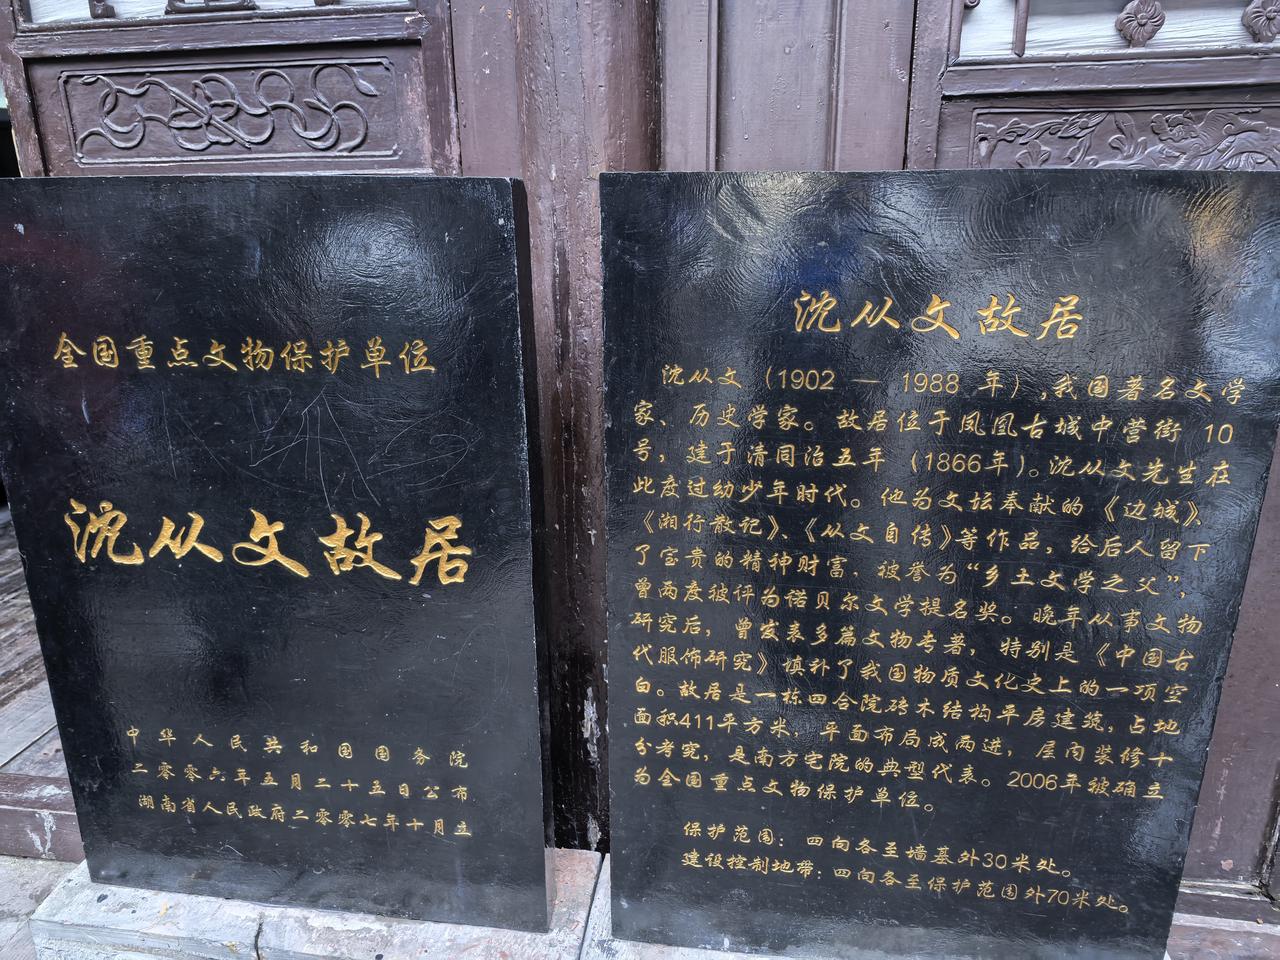 全国重点文物保护单位
沈从文故居
中华人民共和国国务院
二零零六年五月二十五日公布
湖南省人民政府二零零七年十月立
沈从文故居
沈从文（1902 — 1988 年）,我国著名文学
家、历史学家。故居位于凤凰古城中营街 10
号，建于清同治五年（1866年）。沈从文先生在
此度过幼少年时代。他为文坛奉献的《边城》、
《湘行散记》、《从文自传》等作品，给后人留下
了宝贵的精神财富，被誉为“乡土文学之父”，
曾两度被评为诺贝尔文学提名奖。晚年从事文物
研究后，曾发表多篇文物专著，特别是《中国古
代服饰研究》填补了我国物质文化史上的一项空
白。故居是一栋四合院砖木结构平房建筑，占地
面积411平方米，平面布局成两进，层内装修十
分考究，是南方宅院的典型代表。2006年被确立
为全国重点文物保护单位。
保护范围：四向各至墙基外30米处。
建设控制地带：四向各至保护范围外70米处。